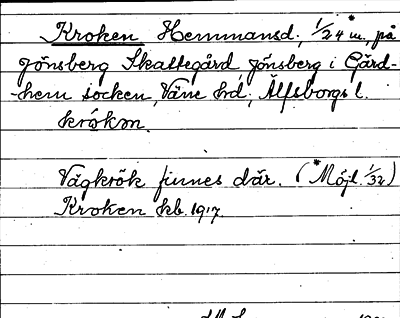 Kroken Hemmansd., 1/24* m., på
Jönsberg Skattegård Jönsberg i Gärd-
-hem socken, Väne hd, Älfsborgs l.
krókən.
Vägkrök finnes där. (*Möjl. 1/32)
Kroken kb. 1917.